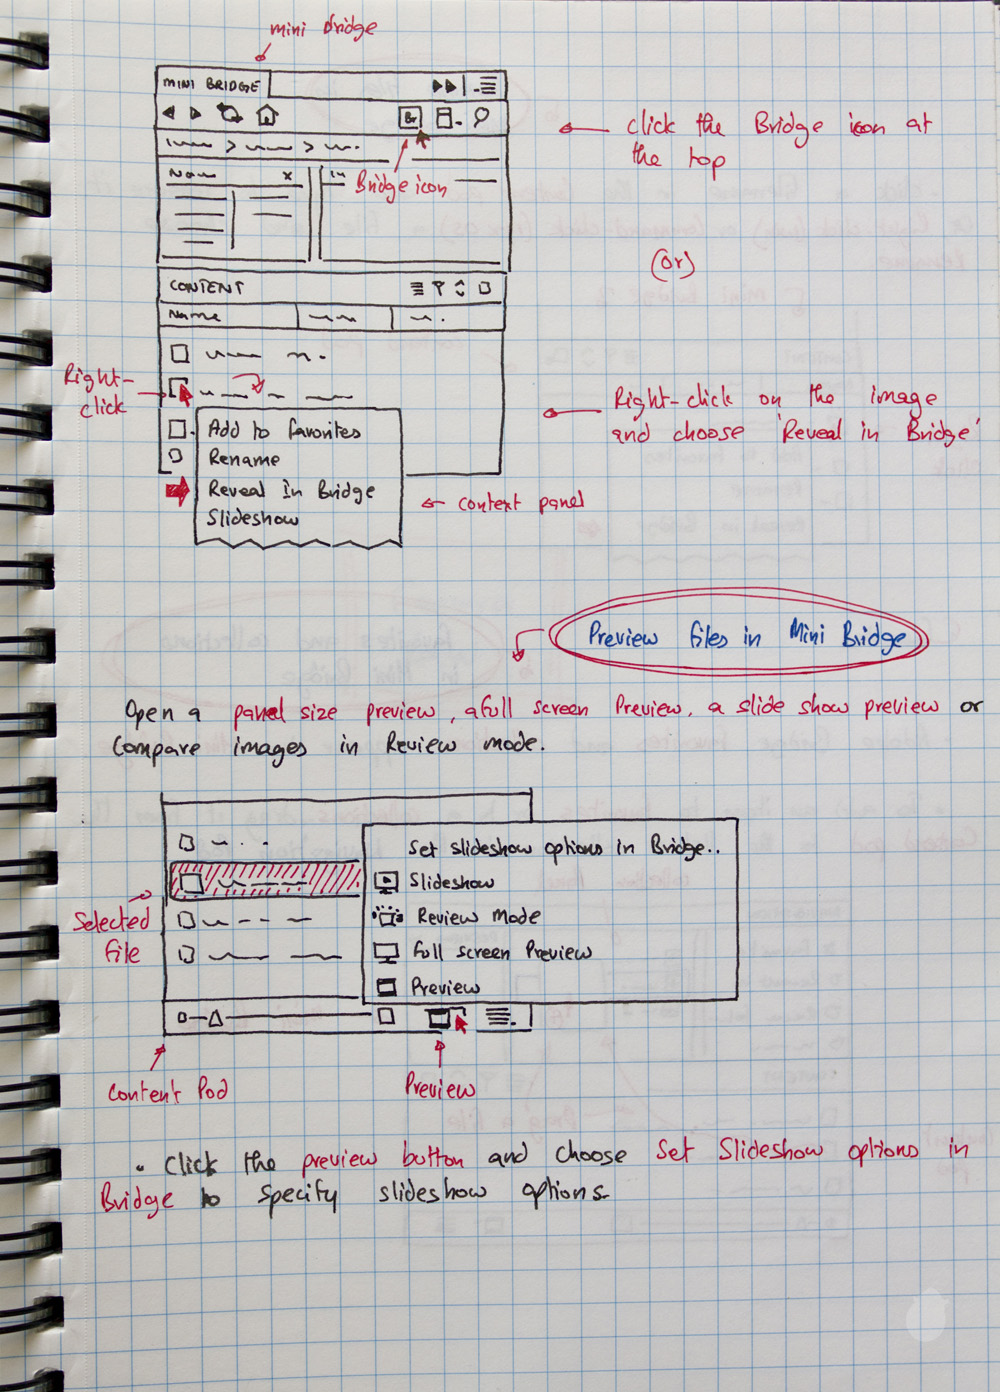 mini bridge
MINI BRIDGE
Br
click the Bridge icon at
the top
Name x
Bridge icon
(or)
CONTENT
Name
Right-
click
Right-click on the image
and choose 'Reveal in Bridge'
Add to favorites
Rename
Reveal in Bridge
Slideshow
context panel
Preview files in Mini Bridge
Open a panel size preview, a full screen Preview, a slide show preview or
compare images in Review mode.
Set slideshow options in Bridge..
Slideshow
Review mode
Full screen Preview
Preview
Selected
file
Content Pod
Preview
. Click the preview button and choose Set Slideshow options in
Bridge to specify slideshow options.